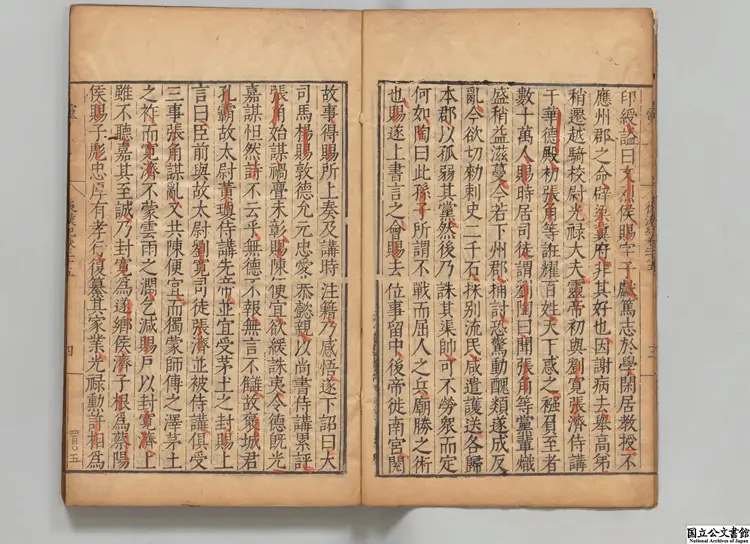 印綬諡曰文烈侯賜字子獻篤志於學閒居教授不
應州郡之命辟梁冀府非其好也因謝病去舉高第
稍遷越騎校尉光祿大夫靈帝初與劉寬張濟侍講
于華德殿初張角等誑耀百姓天下惑之襁負至者
數十萬人賜時居司徒謂劉陶曰聞張角等黨輩熾
盛稍益滋蔓今若下州郡捕討恐驚動醜類遂成反
亂今欲切勑刺史二千石採別流民咸遣護送各歸
本郡以孤弱其黨然後乃誅其渠帥可不勞眾而定
何如陶曰此孫子所謂不戰而屈人之兵廟勝之術
也賜遂上書言之會賜去位事留中後帝徙南宮閱
故事得賜所上奏及講時注籍乃感悟遂下詔曰大
司馬楊賜敦德允元忠愛恭懿親以尚書侍講累評
張角始謀禍釁未彰賜陳便宜欲緩誅夷令德既光
嘉謀怛然詩不云乎無德不報無言不讎故褒城君
孔霸故太尉黃瓊侍講先帝並宜受茅土之封賜上
言曰臣前與故太尉劉寬司徒張濟並被侍講俱受
三事張角謀亂又共陳便宜而獨蒙師傅之澤茅土
之祚而寬濟不蒙雲雨之潤乞減賜戶以封寬濟上
雖不聽嘉其至誠乃封寬為逯鄉侯濟子根為蔡陽
侯賜子彪忠厚有孝行復纂其家業光祿勳許相為
四
四百〇五
国立公文書館
National Archives of Japan